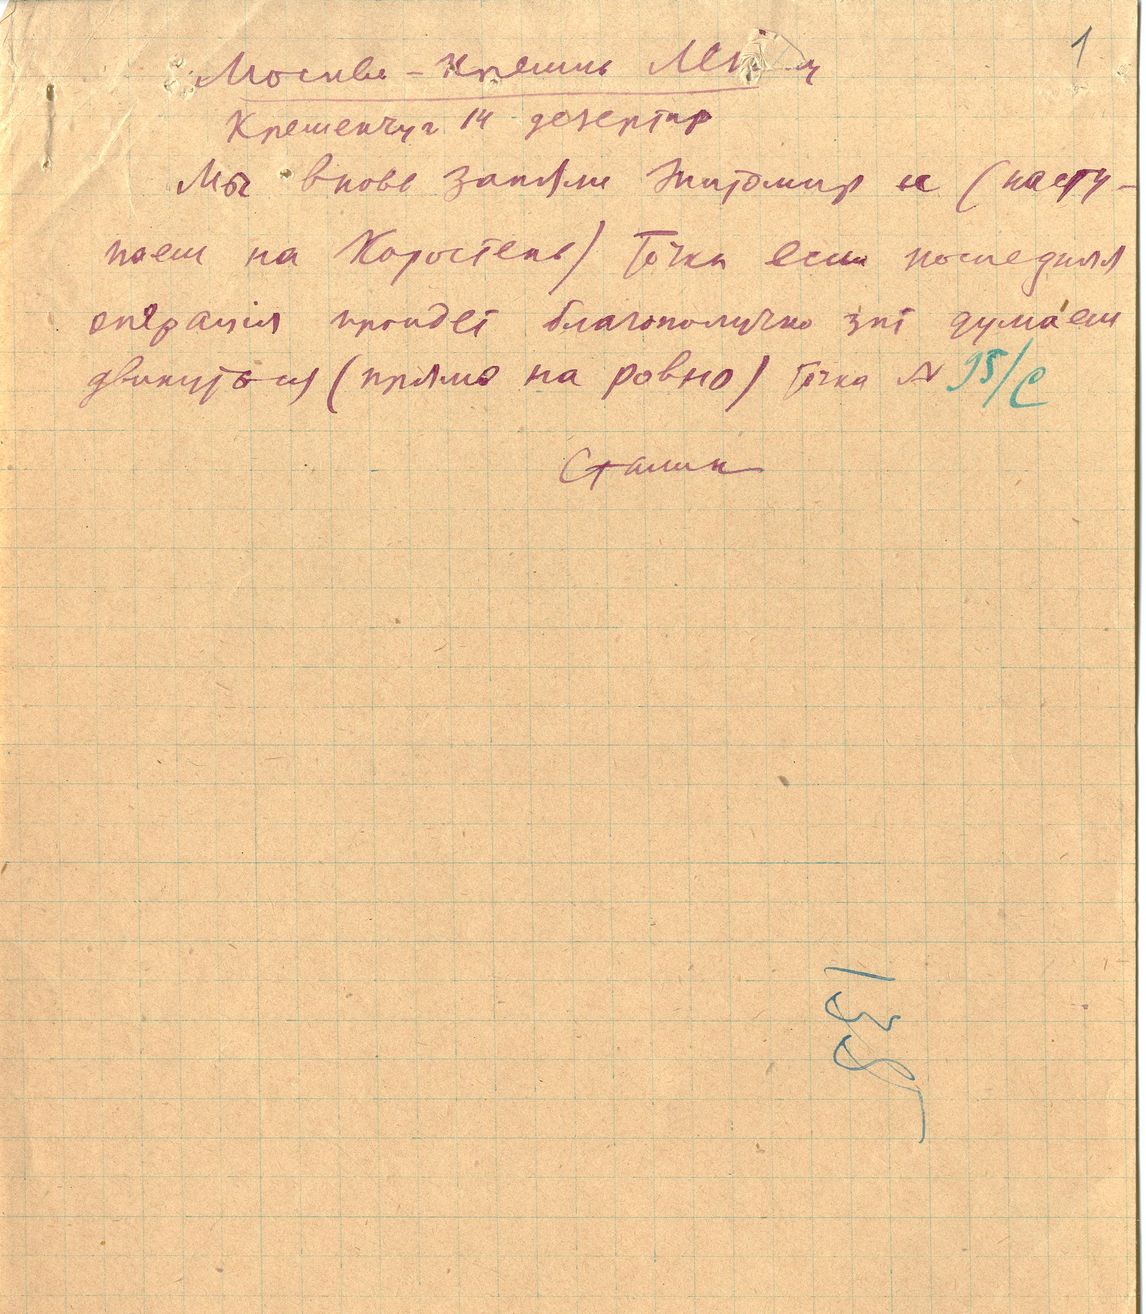 1
Москва – Кремль
Кременчуг 14 дезертир
Мы вновь заняли Житомир и (насту-
паем на Коростень) Точка если последняя
операция пройдет благополучно зпт думаем
двинуться (прямо на ровно) точка № 95/с
Сталин
138